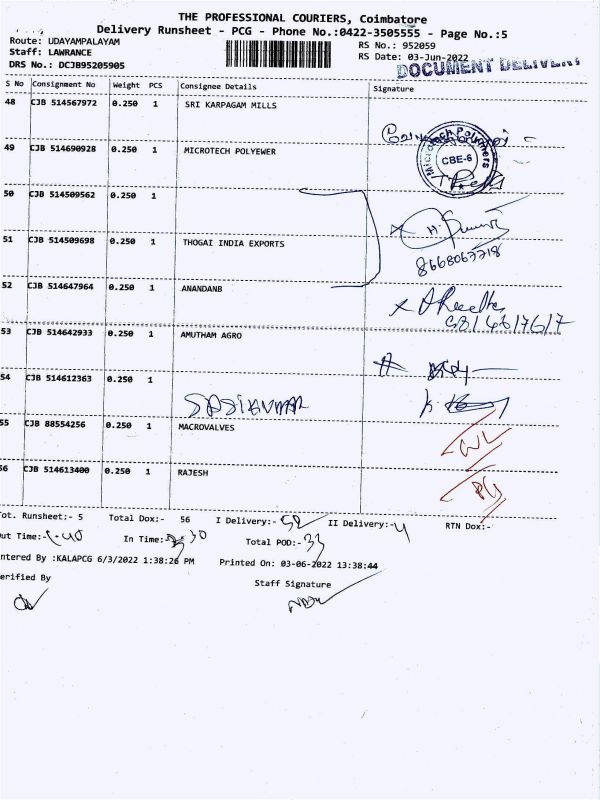 THE PROFESSIONAL COURIERS, Coimbatore
Delivery Runsheet - PCG - Phone No.:0422-3505555 - Page No.:5
Route: UDAYAMPALAYAM RS No.: 952059
Staff: LAWRANCE RS Date: 03-Jun-2022
DRS No.: DCJB95205905 DOCUMENT DELIVERY
S No Consignment No Weight PCS Consignee Details Signature
48 CJB 514567972 0.250 1 SRI KARPAGAM MILLS
49 CJB 514690928 0.250 1 MICROTECH POLYEWER
Microtech Polymers
CBE-6
50 CJB 514509562 0.250 1
51 CJB 514509698 0.250 1 THOGAI INDIA EXPORTS
8668067718
52 CJB 514647964 0.250 1 ANANDANB
53 CJB 514642933 0.250 1 AMUTHAM AGRO
54 CJB 514612363 0.250 1 SASIKUMAR
55 CJB 88554256 0.250 1 MACROVALVES
56 CJB 514613400 0.250 1 RAJESH
Tot. Runsheet:- 5 Total Dox:- 56 I Delivery:- 52 II Delivery:- 4 RTN Dox:-
Out Time:- In Time:- Total POD:- 33
Entered By :KALAPCG 6/3/2022 1:38:26 PM Printed On: 03-06-2022 13:38:44
Verified By Staff Signature